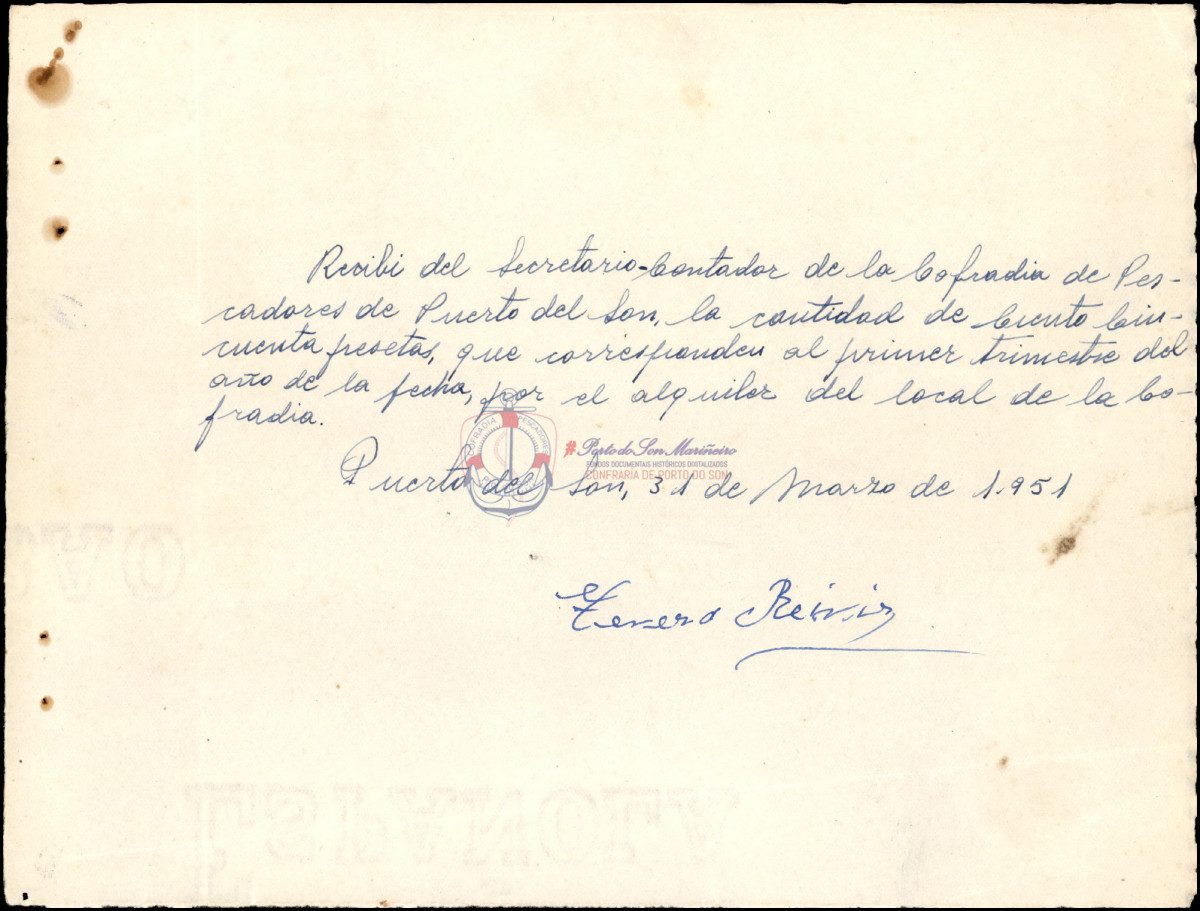 Recibi del Secretario-Contador de la Cofradia de Pes-
cadores de Puerto del Son, la cantidad de Ciento Cin-
cuenta pesetas, que corresponden al primer trimestre del
año de la fecha, por el alquiler del local de la Co-
fradia.
#Porto do Son Mariñeiro
FONDOS DOCUMENTAIS HISTÓRICOS DIXITALIZADOS
CONFRARÍA DE PORTO DO SON
Puerto del Son, 31 de Marzo de 1.951
ESPAÑOLA